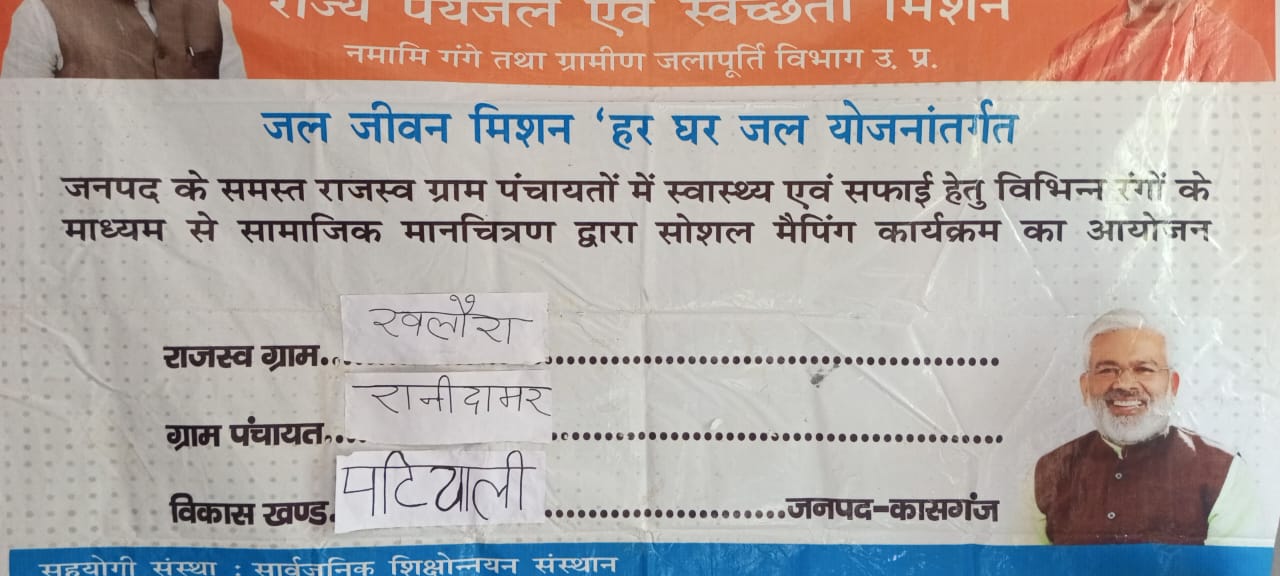 राज्य पेयजल एवं स्वच्छता मिशन
नमामि गंगे तथा ग्रामीण जलापूर्ति विभाग उ. प्र.
जल जीवन मिशन ‘हर घर जल योजनांतर्गत
जनपद के समस्त राजस्व ग्राम पंचायतों में स्वास्थ्य एवं सफाई हेतु विभिन्न रंगों के
माध्यम से सामाजिक मानचित्रण द्वारा सोशल मैपिंग कार्यक्रम का आयोजन
खलौरा
राजस्व ग्राम
रानीदामर
ग्राम पंचायत
पटियाली
विकास खण्ड जनपद-कासगंज
सहयोगी संस्था : सार्वजनिक शिक्षोन्नयन संस्थान